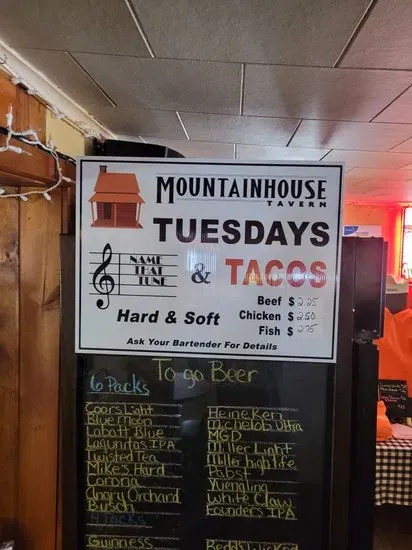 MOUNTAINHOUSE
TAVERN
TUESDAYS
NAME
THAT
TUNE
& TACOS
Beef $ 2.25
Chicken $ 2.50
Fish $ 2.75
Hard & Soft
Ask Your Bartender For Details
To go Beer
6 Packs
Coors Light
Blue Moon
Labatt Blue
Lagunitas IPA
Twisted Tea
Mike's Hard
Corona
Angry Orchard
Busch
4 Packs
Guinness
Heineken
Michelob Ultra
MGD
Miller Light
Miller high life
Pabst
Yuengling
White Claw
Founders IPA